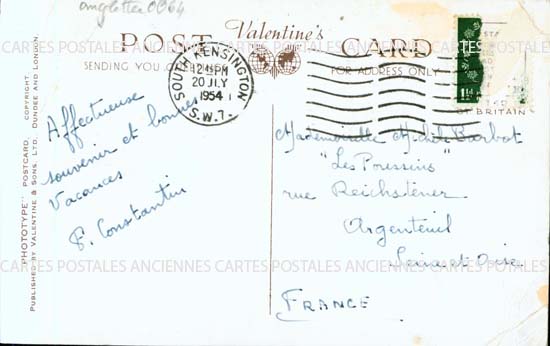 angleterre 0064
Valentine's
POST CARD
SENDING YOU
FOR ADDRESS ONLY
SOUTH KENSINGTON
12-PM
20 JLY
1954
S.W.7.
1½D
BRITAIN
Affectueux
souvenir et bonnes
Vacances
F. Constantin
Mademoiselle Michèle Barbot
"Les Poussins"
rue Reichstener
Argenteuil
Seine et Oise
FRANCE
CARTES POSTALES ANCIENNES CARTES POSTALES ANCIENNES CARTES POSTALES
"PHOTOTYPE" POSTCARD. COPYRIGHT.
PUBLISHED BY VALENTINE & SONS, LTD. DUNDEE AND LONDON.